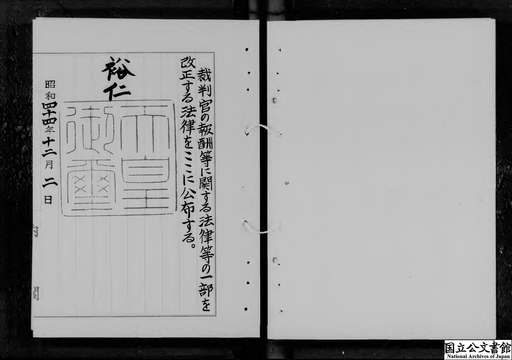 裁判官の報酬等に関する法律等の一部を
改正する法律をここに公布する。
裕仁
天皇
御璽
昭和四十四年十二月二日
国立公文書館
National Archives of Japan